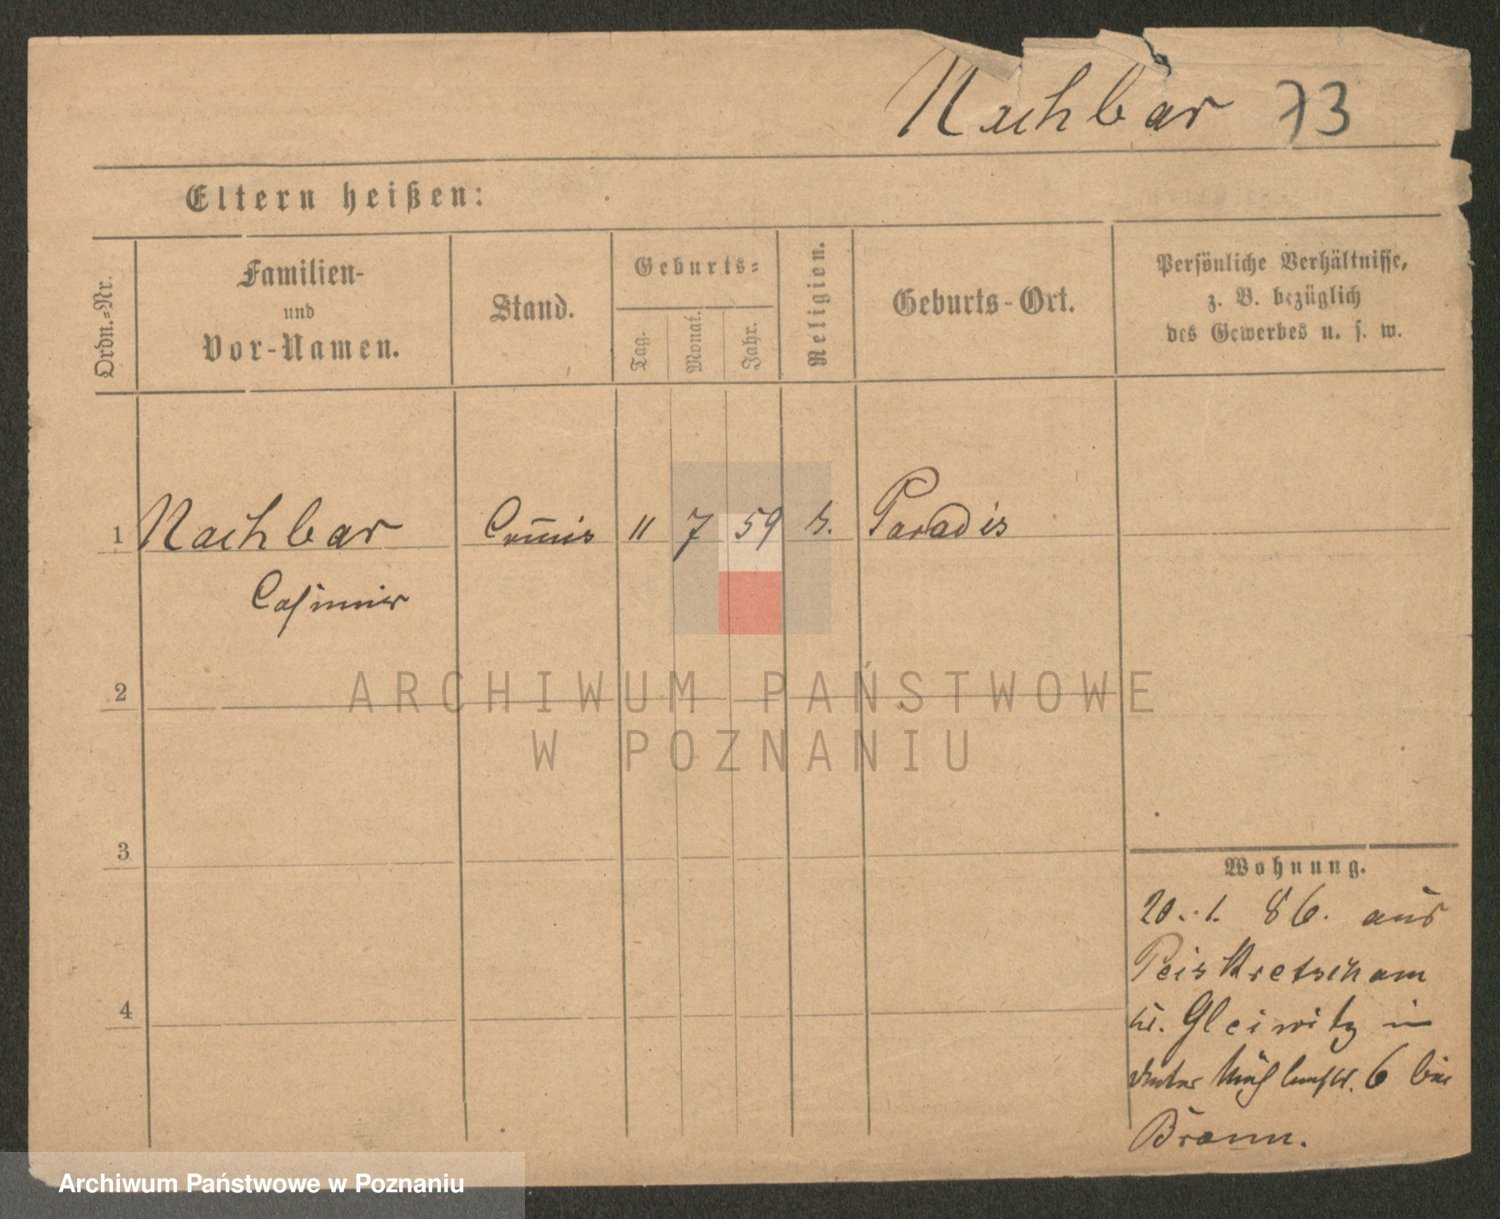 Nachbar 73
Eltern heißen:
Ordn.-Nr.
Familien-
und
Vor-Namen.
Stand.
Geburts-
Tag.
Monat.
Jahr.
Religion.
Geburts-Ort.
Persönliche Verhältnisse,
z. B. bezüglich
des Gewerbes u. s. w.
1 Nachbar Com̄is 11 7 59 k. Paradis
Casimir
2
3
4
Wohnung.
20. 1. 86. aus
Peiskretscham
Kr. Gleiwitz in
6 bei
Braun.
ARCHIWUM PAŃSTWOWE
W POZNANIU
Archiwum Państwowe w Poznaniu